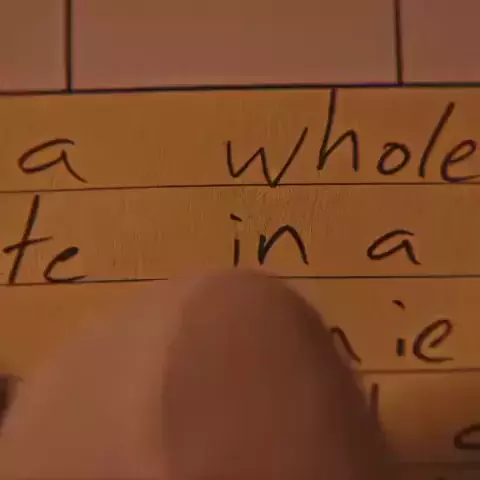 a whole
te in a
nie